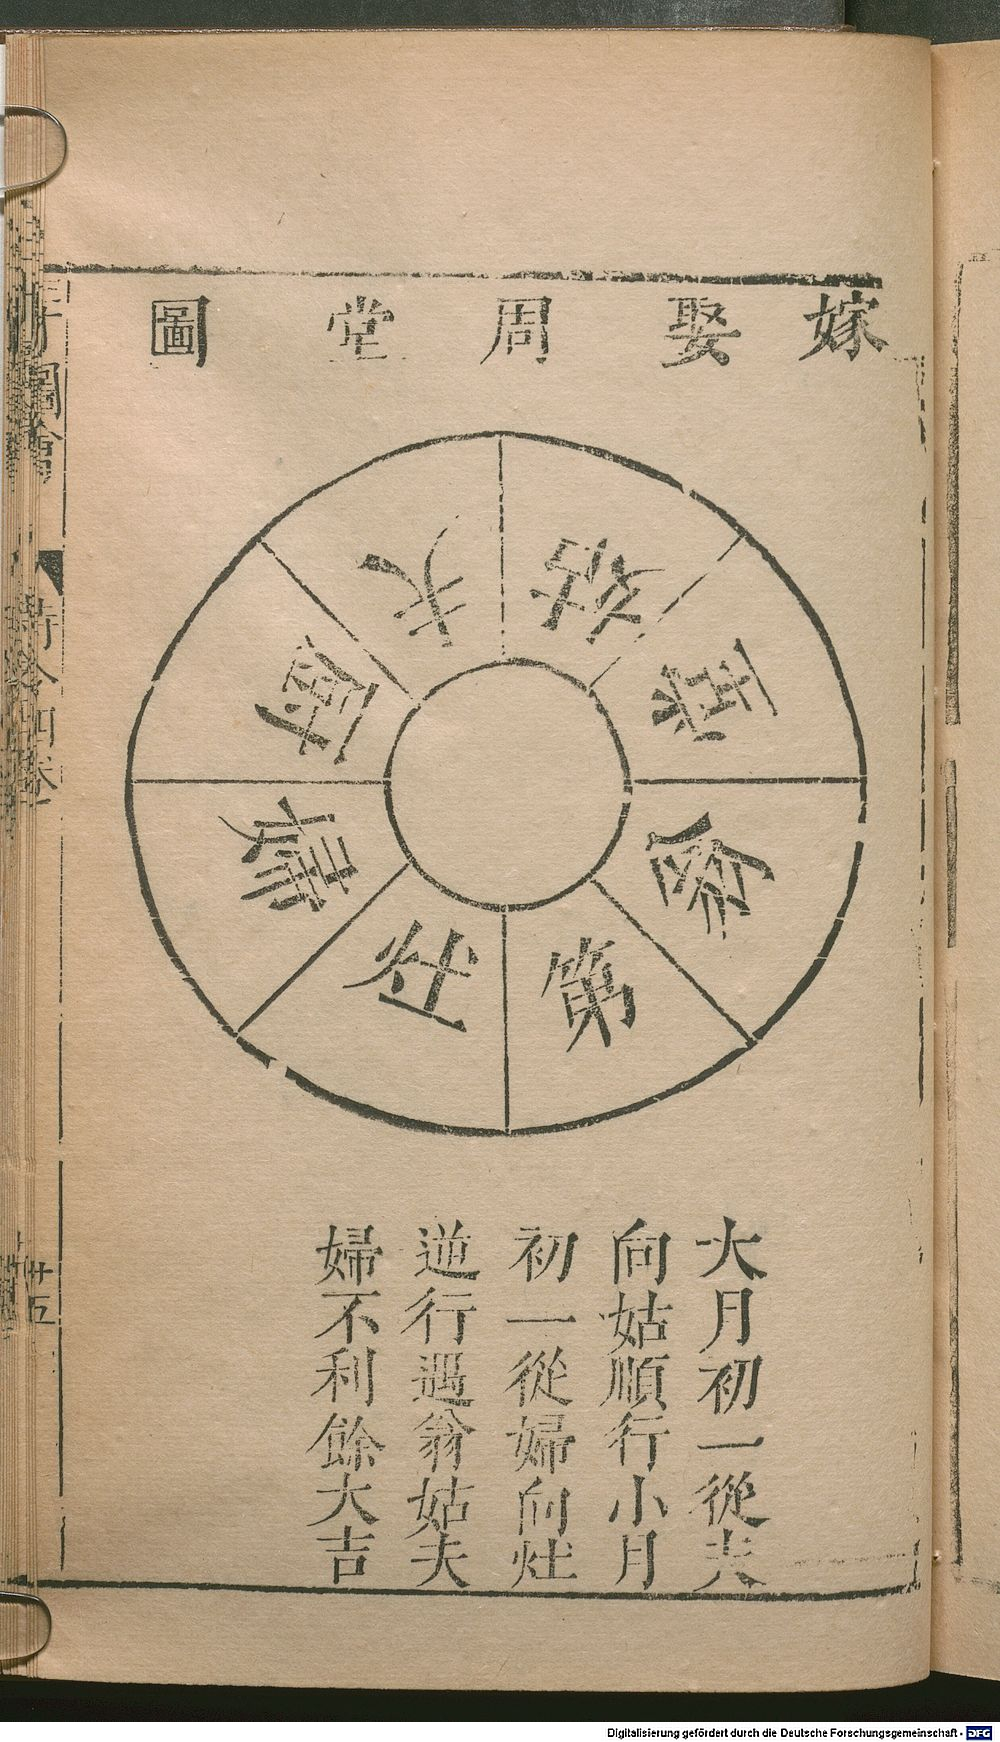 嫁娶周堂圖
夫
姑
堂
翁
第
灶
婦
廚
大月初一從夫
向姑順行小月
初一從婦向灶
逆行遇翁姑夫
婦不利餘大吉
圖會
時令四卷
卅五
Digitalisierung gefördert durch die Deutsche Forschungsgemeinschaft - DFG